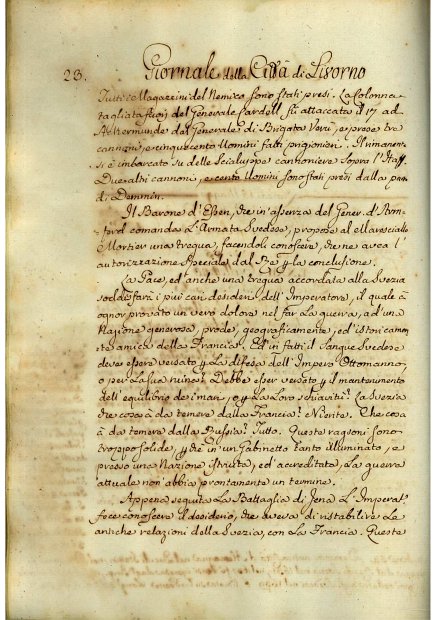 23. Giornale della Città di Livorno
Tutti i Magazzini del Nemico sono stati presi. La Colonna
tagliata fuori del Generale Cardell fù attaccata il 17 ad
Ukermunde dal Generale di Brigata Veru, e prese tre
cannoni, e cinquecento Uomini fatti prigionieri. Il rimanen-
si è imbarcato su delle Scialuppe cannoniere sopra l'Haff
Due altri cannoni, e cento Uomini sono stati presi dalla
di Demmin.
Il Barone d'Essen, che in assenza del Gener. d'Arm-
ferd comanda L'Armata Svedese, propose al Maresciallo
Mortier una tregua, facendoli conoscere, che ne avea l'
autorizzazione Speciale dal Re p la conclusione.
La Pace, ed anche una tregua accordata alla Svezia
soddisfarà i più cari desideri dell'Imperatore, il quale à
ognor provato un vero dolore nel far La guerra, ad una
Nazione generosa, prode, geograficamente, ed istoricame-
te amica della Francia. Ed in fatti il Sangue Svedese
deve essere versato p La difesa dell'Impero Ottomanno,
o per La sua ruina? Debbe esser versato p il mantenimento
dell'equilibrio dei mari, o p La Loro schiavitù? La Svezia
che cosa à da temere dalla Francia? Niente. Che cosa
à da temere dalla Russia? Tutto. Queste ragioni sono
troppo solide, p che in un Gabinetto tanto illuminato, e
presso una Nazione istruita, ed accreditata, La guerra
attuale non abbia prontamente un termine.
Appena seguita La Battaglia di Jena L'Imperat
fece conoscere il desiderio, che aveva di ristabilire Le
antiche relazioni della Svezia, con La Francia. Queste